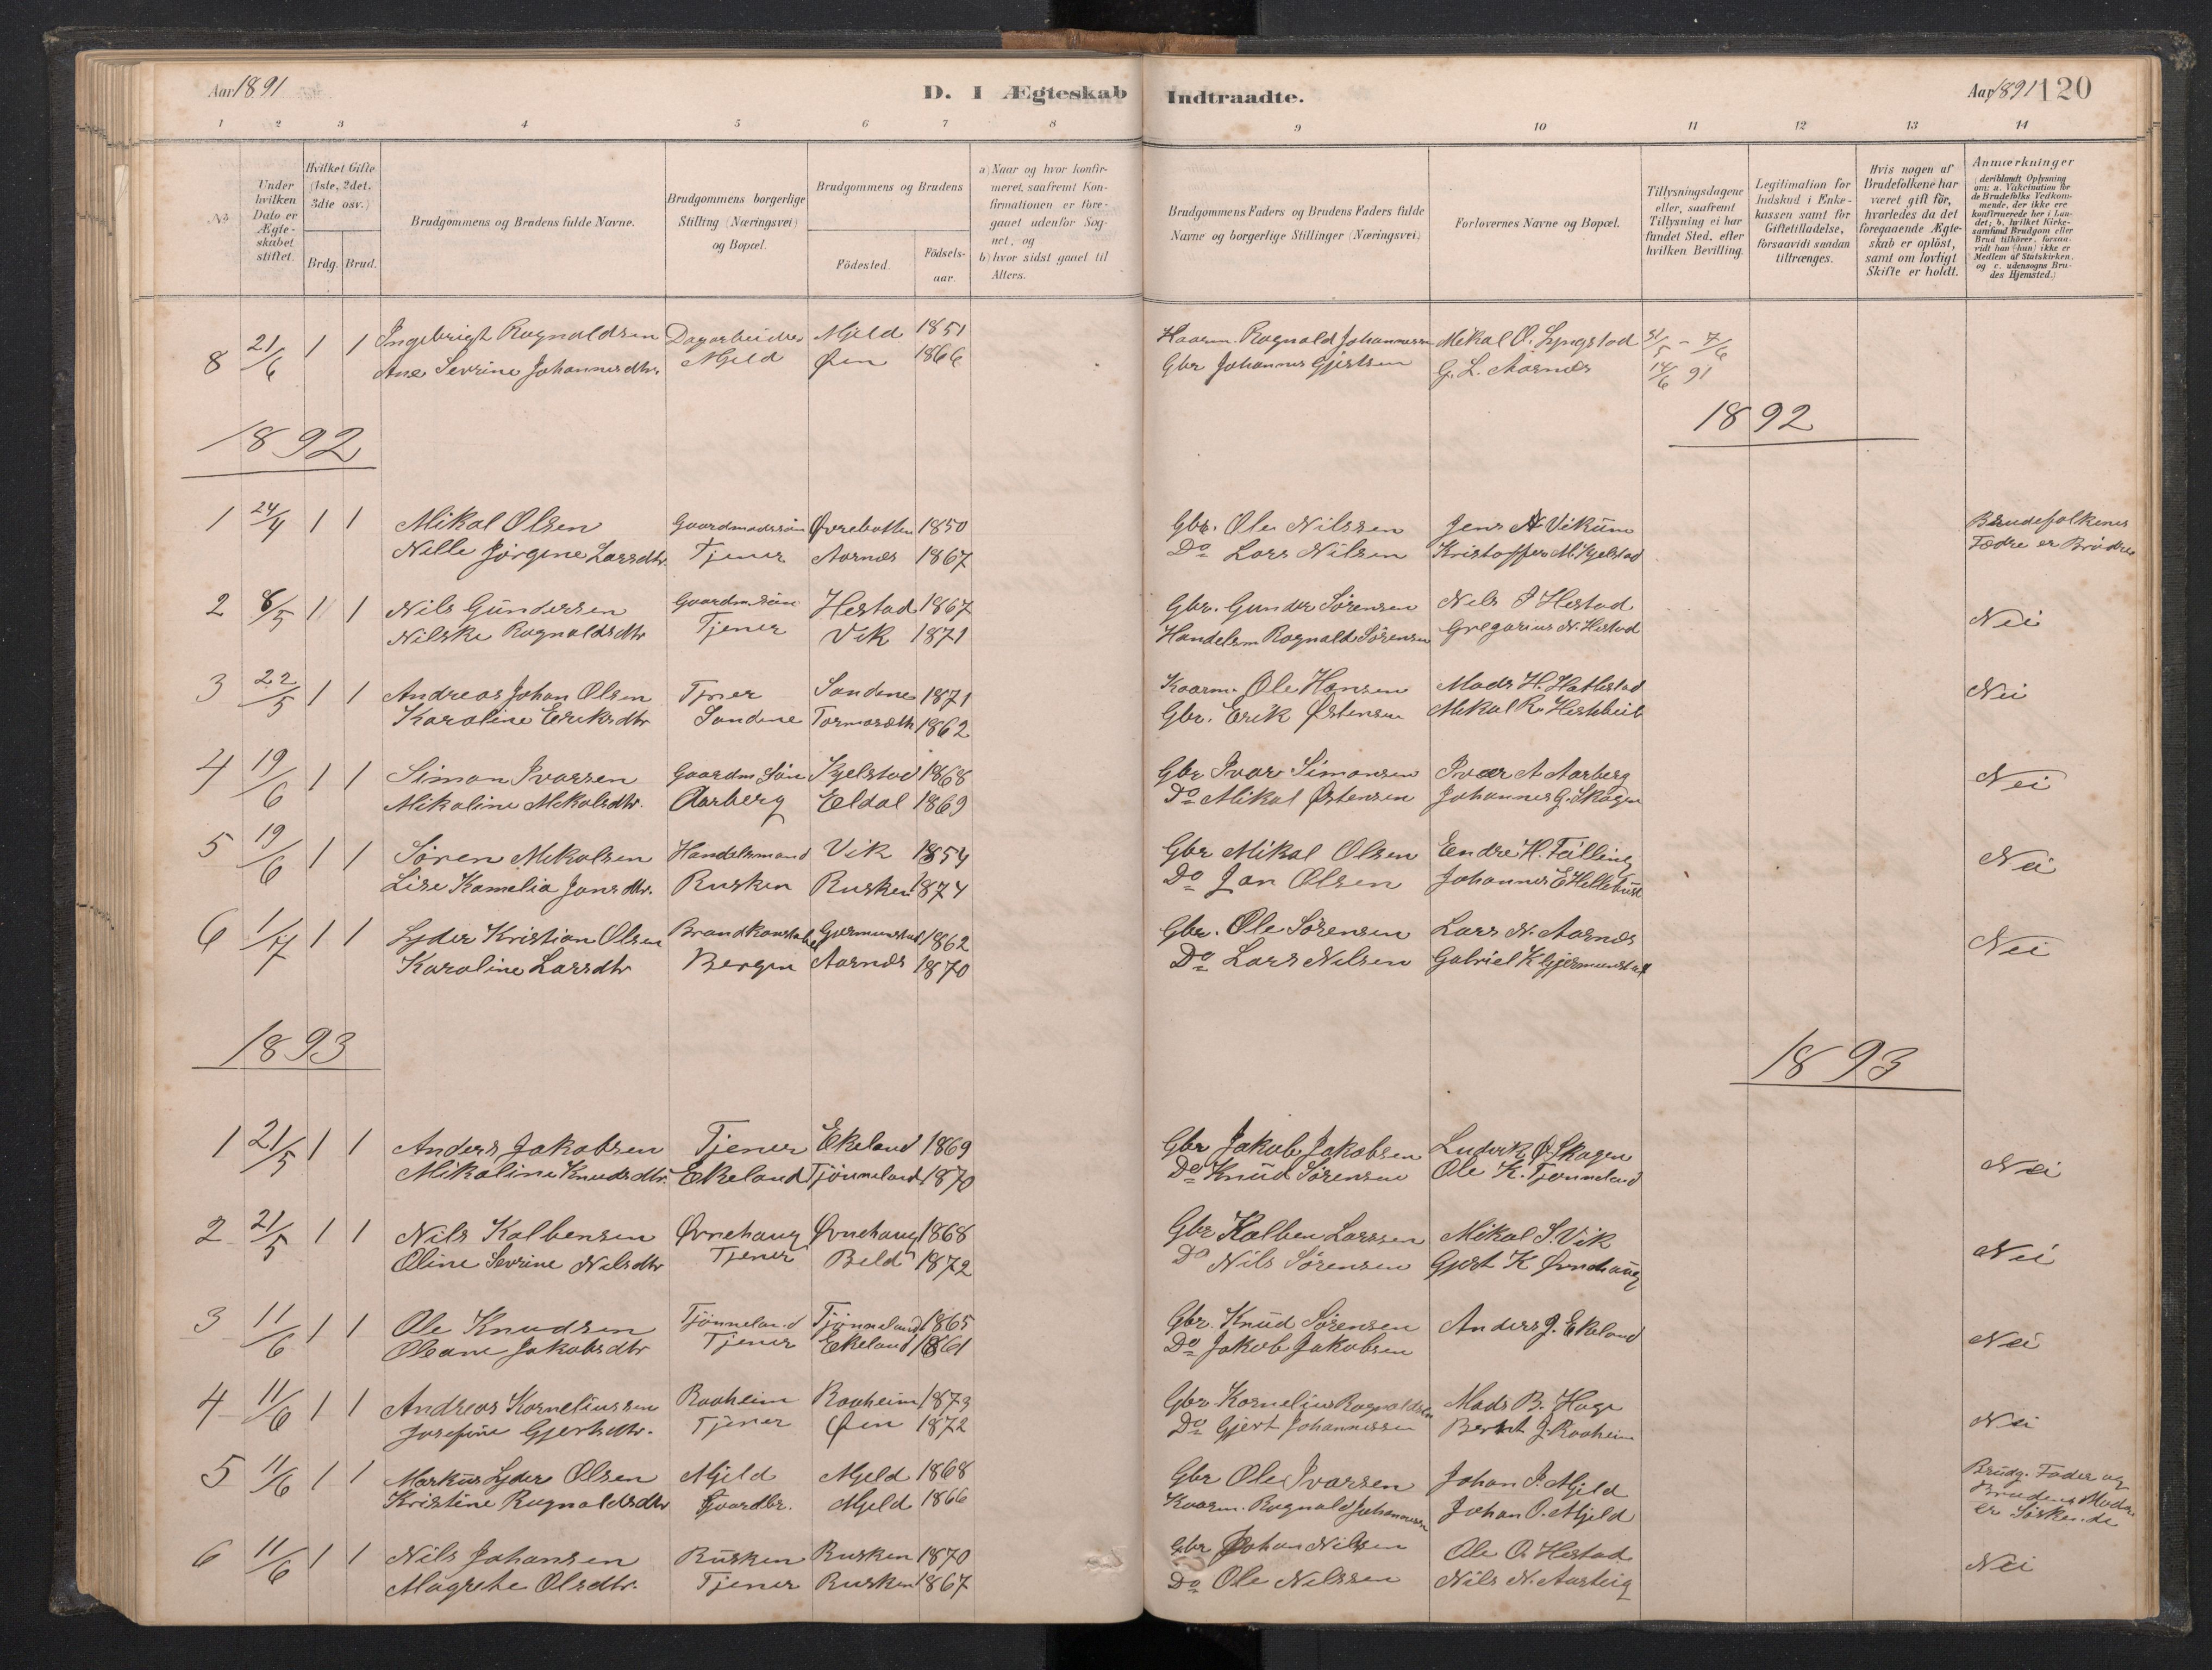 Aar 1891
D. I Ægteskab Indtraadte.
Aar 1891 120
1 2 3 4 5 6 7 8 9 10 11 12 13 14
No
Under hvilken Dato er Ægte-skabet stiftet.
Hvilket Gifte (1ste, 2det, 3die osv.)
Brdg. Brud.
Brudgommens og Brudens fulde Navne.
Brudgommens borgerlige Stilling (Næringsvei) og Bopæl.
Brudgommens og Brudens
Födested.
Födsels-aar.
a) Naar og hvor konfir-meret, saafremt Kon-firmationen er fore-gaaet udenfor Sog-net, og
b) hvor sidst gaaet til Alters.
Brudgommens Faders og Brudens Faders fulde Navne og borgerlige Stillinger (Næringsvei)
Forlovernes Navne og Bopæl.
Tillysningsdagene eller, saafremt Tillysning ei har fundet Sted, efter hvilken Bevilling.
Legitimation for Indskud i Enke-kassen samt for Giftetilladelse, forsaavidt saadan tiltrænges.
Hvis nogen af Brudefolkene har været gift för, hvorledes da det foregaaende Ægte-skab er oplöst, samt om lovligt Skifte er holdt.
Anmærkninger (deriblandt Oplysning om: a. Vakcination for de Brudefolks Vedkom-mende, der ikke ere konfirmerede her i Lan-det; b. hvilket Kirke-samfund Brudgom eller Brud tilhörer, forsaa-vidt han (hun) ikke er Medlem af Statskirken, og c. udensogns Bru-des Hjemsted.)
8 21/6 1 1 Ingebrigt Ragnaldsen Dagarbeider Mjeld 1851 Haasm. Ragnald Johannessen Mikal O. Lyngstad 31/5 - 7/6
Ane Sevrine Johannesdtr. Mjeld Øen 1866 Gbr Johannes Gjertsen G. L. Aarnæs 14/6 91
1892 1892
1 24/4 1 1 Mikal Olsen Gaardmadssön Øvrebotten 1850 Gbr. Ole Nilssen Jens A Vikum Brudefolkenes
Nille Jörgine Larsdtr. Tjener Aarnæs 1867 Do Lars Nilsen Kristoffer M. Kjelstad Fædre er Brödre
2 8/5 1 1 Nils Gundersen Gaardm.sön Hestad 1867 Gbr. Gunder Sörensen Nils J Hestad Nei
Nilske Ragnaldsdtr Tjener Vik 1871 Handelsm Ragnald Sörensen Gregorius N. Hestad
3 22/5 1 1 Andreas Johan Olsen Tjner Sandene 1871 Kaarm. Ole Hansen Mads H. Hatlestad Nei
Karoline Eriksdtr Sandene Tormosæth 1862 Gbr. Erik Østensen Mikal R.
4 19/6 1 1 Simon Ivarsen Gaardm Sön Kjelstad 1868 Gbr Ivar Simonsen Ivar A Aarberg Nei
Mikaline Mikalsdtr. Aarberg Eldal 1869 Do Mikal Østensen Johannes G. Skogen
5 19/6 1 1 Sören Mikalsen Handelsmand Vik 1854 Gbr Mikal Olsen Endre H. Tælling Nei
Lise Kamelia Jansdtr. Rusken Rusken 1874 Do Jan Olsen Johannes E Hellebust
6 1/7 1 1 Lyder Kristian Olsen Brandkonstabel Gjermunstad 1862 Gbr. Ole Sörensen Lars N. Aarnæs Nei
Karoline Larsdtr Bergen Aarnæs 1870 Do Lars Nilsen Gabriel K Gjermunstad
1893 1893
1 21/5 1 1 Anders Jakobsen Tjener Ekeland 1869 Gbr Jakob Jakobsen Ludvik Ø. Skogen Nei
Mikaline Knudsdtr. Ekeland Tjönneland 1870 Do Knud Sörensen Ole K. Tjønneland
2 21/5 1 1 Nils Kolbensen Ørnehaug Ørnehaug 1868 Gbr Kolben Larssen Mikal S. Vik Nei
Oline Sevrine Nilsdtr Tjener Beld 1872 Do Nils Sörensen Gjert K Ørnehaug
3 11/6 1 1 Ole Knudsen Tjönneland Tjönneland 1865 Gbr. Knud Sörensen Anders J. Ekeland Nei
Oleane Jakobsdtr Tjener Ekeland 1861 Do Jakob Jakobsen
4 11/6 1 1 Andreas Korneliussen Raaheim Raaheim 1873 Gbr Kornelius Ragnaldsen Mads B. Hage Nei
Josefine Gjertsdtr. Tjener Øen 1872 Do Gjert Johannessen Bernt J. Raaheim
5 11/6 1 1 Markus Lyder Olsen Mjeld Mjeld 1868 Gbr Ole Ivarsen Johan I. Mjeld Brudg. Fader og
Kristine Ragnaldsdtr Gaardbr. Mjeld 1866 Kaarm. Ragnald Johannessen Johan O. Mjeld Brudens Moder er Söskende
6 11/6 1 1 Nils Johansen Rusken Rusken 1870 Gbr Johan Nilsen Ole O. Hestad Nei
Magrete Olsdtr. Tjener Rusken 1867 Do Ole Nilssen Nils N.